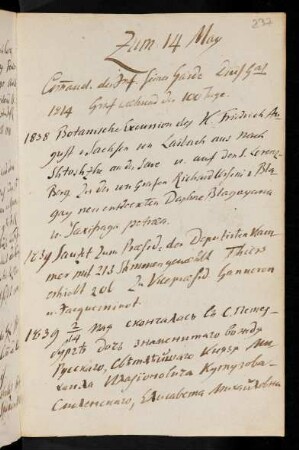 237
Zum 14 May
Command. der Garde
1814 Graf während der 100 Tage.
1838 Botanische Excursion des K. Friedrich Au-
gust v. Sachsen von Laibach aus nach
an d. Save u. auf den S. Lorenz-
Berg zu der von Grafen Richard Ursini v. Bla-
gay neu entdeckten Daphne Blagayana
u. Saxifraga petraea.
1839 Sauzet zum Praesid. der Deputirten Kam-
mer mit 213 Stimmen gewählt Thiers
erhielt 206 Zu Vicepraesid. Ganneron
u. Jacqueminot.
1839 2/14 Мая скончалась въ С. Петер-
бургѣ дочь знаменитаго вождя
Русскаго, Свѣтлѣйшаго Князя Ми-
хаила Иларіоновича Кутузова-
Смоленскаго, Елисавета Михайловна